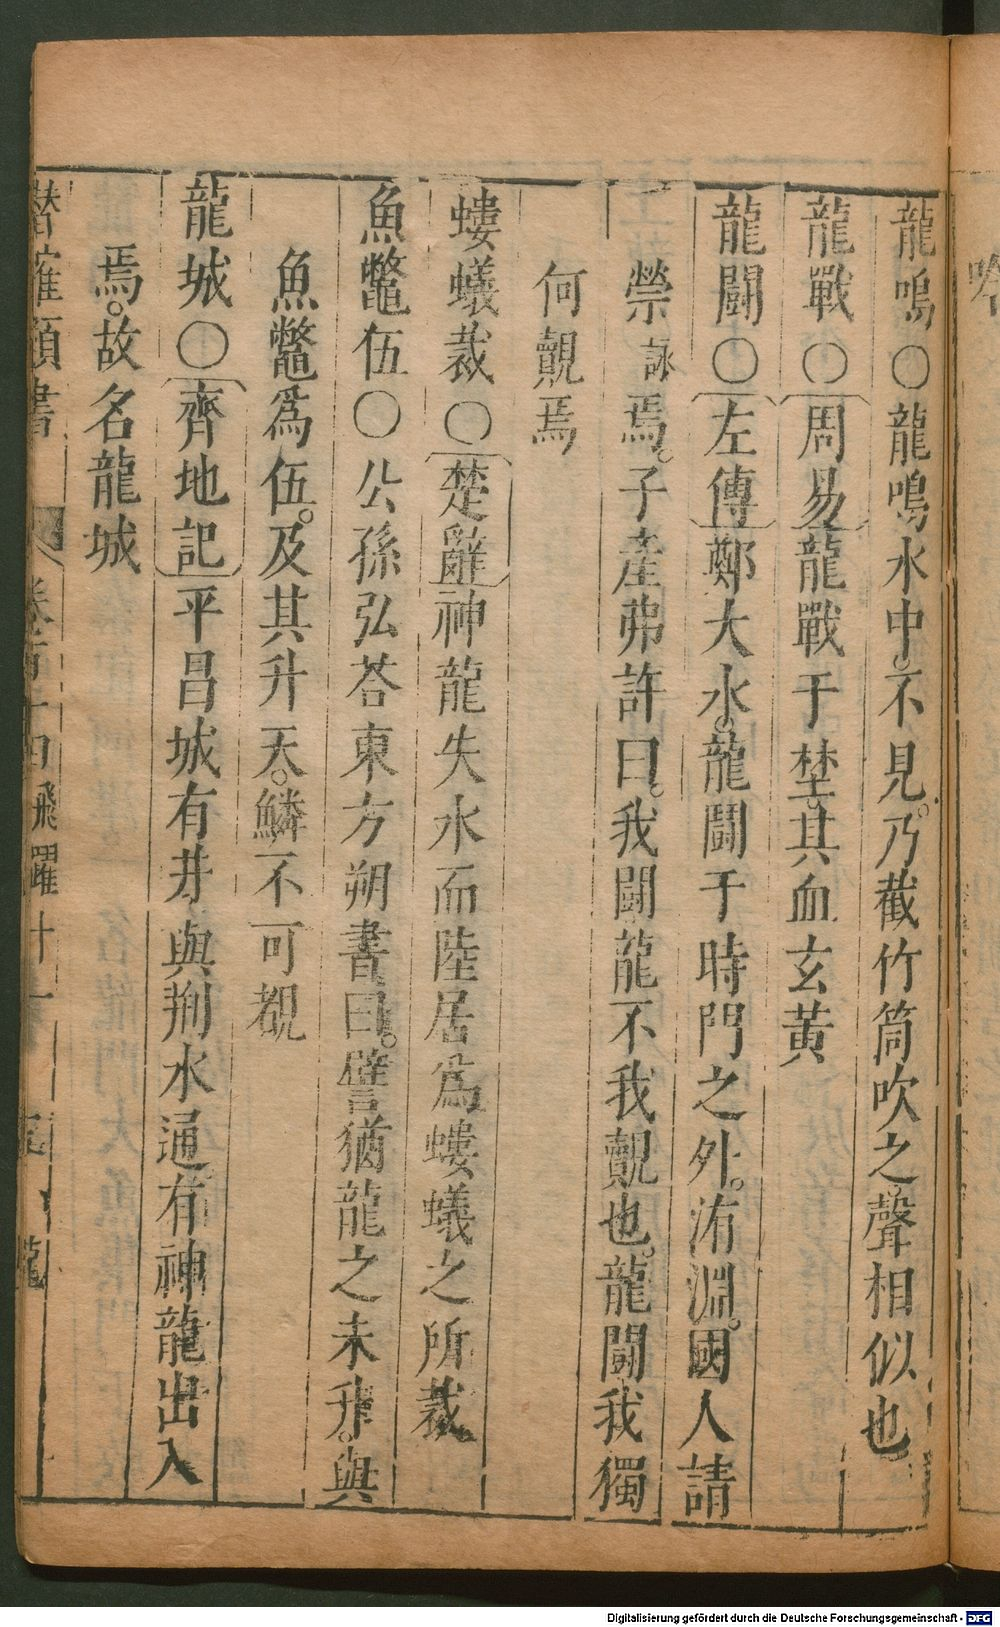 龍鳴○龍鳴水中。不見。乃截竹筒吹之聲相似也
龍戰○周易龍戰于埜。其血玄黃
龍鬪○左傳鄭大水。龍鬪于時門之外。洧淵。國人請
禜詠焉。子產弗許曰。我鬪龍不我覿也。龍鬪我獨
何覿焉
螻蟻裁○楚辭神龍失水而陸居爲螻蟻之所裁。
魚鼈伍○公孫弘荅東方朔書曰。譬猶龍之未升。與
魚鼈爲伍。及其升天。鱗不可覩
龍城○齊地記平昌城有井與荊水通有神龍出入
焉。故名龍城
類書 飛躍十一
Digitalisierung gefördert durch die Deutsche Forschungsgemeinschaft - DFG